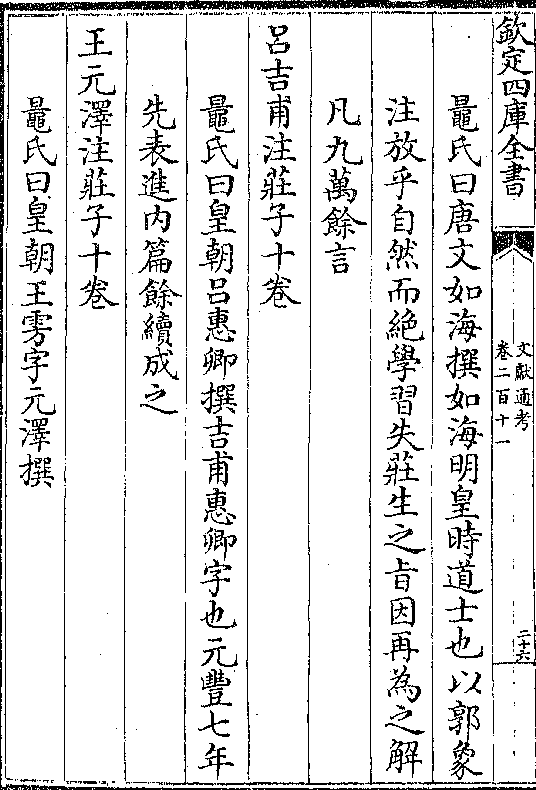 欽定四庫全書
文獻通考
卷二百十一
二十六
鼂氏曰唐文如海撰如海明皇時道士也以郭象
注放乎自然而絕學習失莊生之㫖因再為之解
凡九萬餘言
呂吉甫注莊子十卷
鼂氏曰皇朝呂惠卿撰吉甫惠卿字也元豐七年
先表進内篇餘續成之
王元澤注莊子十卷
鼂氏曰皇朝王雱字元澤撰